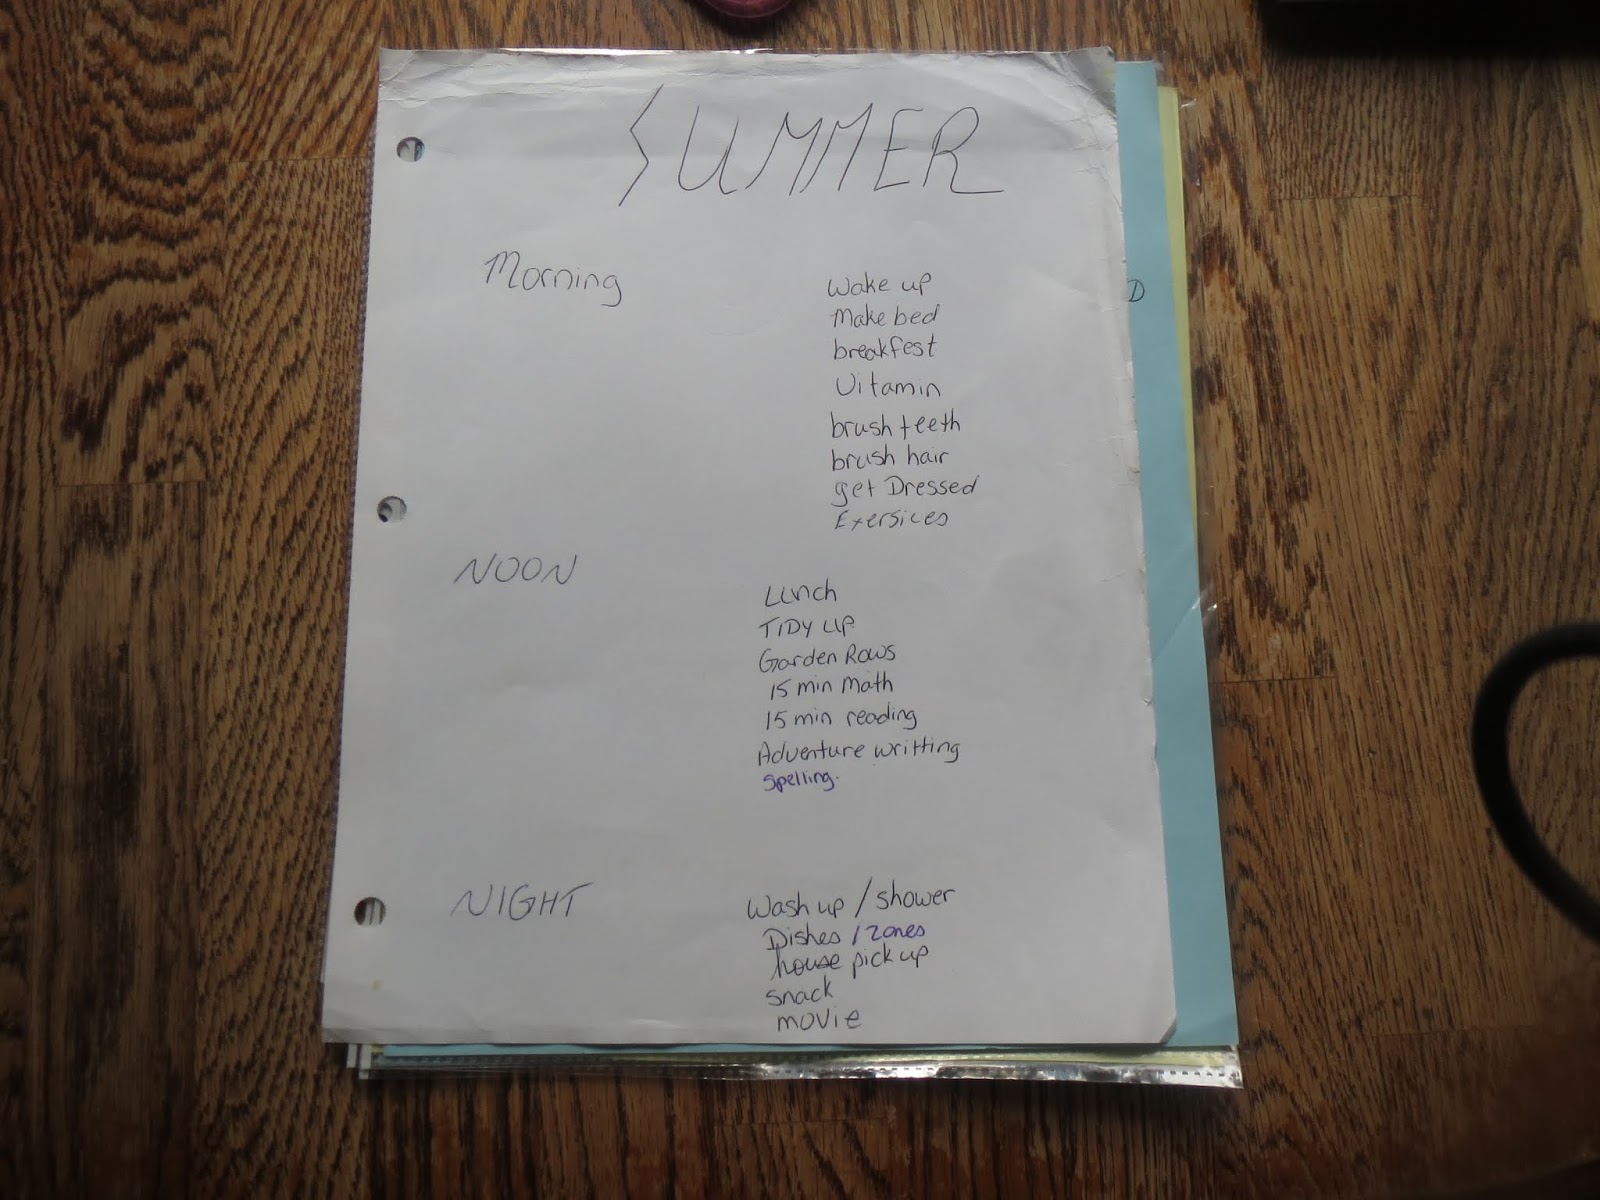 SUMMER
Morning
Wake up
Make bed
breakfest
Vitamin
brush teeth
brush hair
get Dressed
Exersices
NOON
Lunch
TIDY UP
Garden Rows
15 min Math
15 min reading
Adventure writting
Spelling.
NIGHT
Wash up / shower
Dishes / zones
house pick up
snack
movie
D